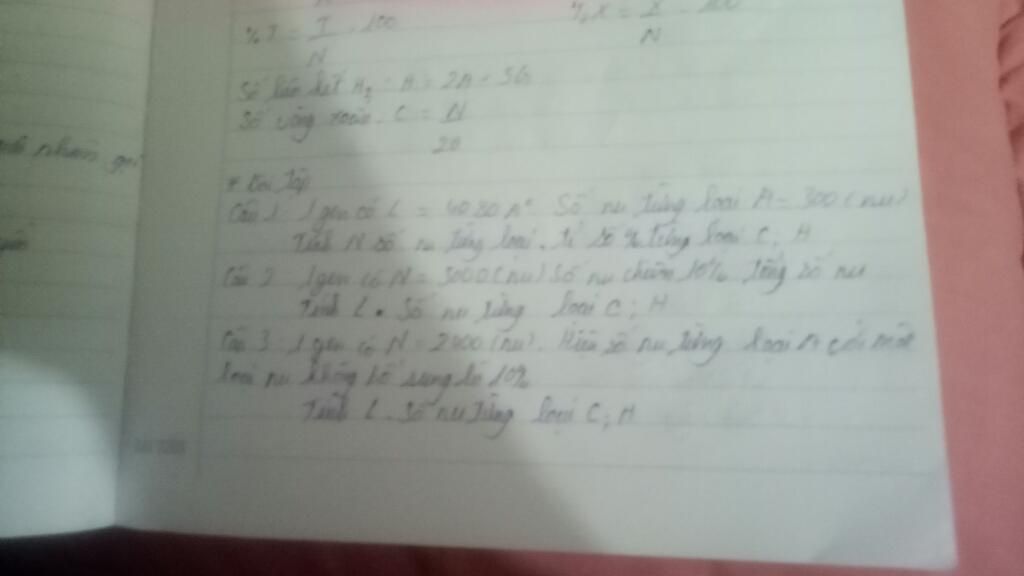 %T = T/N . 100
%X = X/N . 100
Số liên kết H₂ : H = 2A + 3G
Số vòng xoắn. C = N/20
* Bài tập
Câu 1 1 gen có L = 4080 A° Số nu từng loại A = 300 (nu)
Tính N số nu từng loại, tỉ số % từng loại C, H
Câu 2 1 gen có N = 3000 (nu) Số nu chiếm 10% Tổng số nu
Tính L. Số nu từng loại C; H
Câu 3 1 gen có N = 2400 (nu). Hiệu số nu từng loại A với một
loại nu không bổ sung là 10%
Tính L. Số nu từng loại C; H